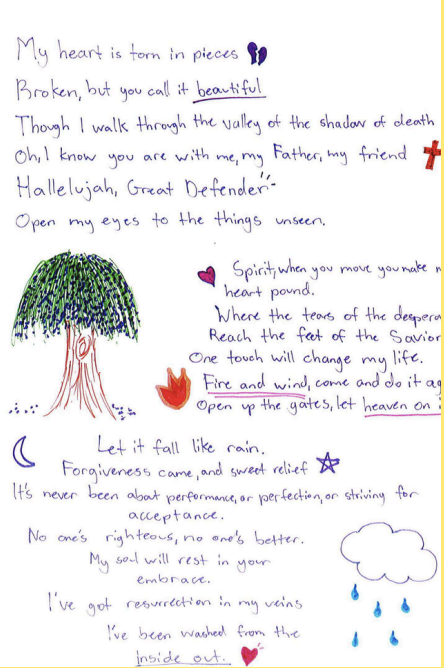 My heart is torn in pieces
Broken, but you call it beautiful
Though I walk through the valley of the shadow of death
Oh, I know you are with me, my Father, my friend
Hallelujah, Great Defender
Open my eyes to the things unseen.
Spirit, when you move you make
heart pound.
Where the tears of the
Reach the feet of the Savior
One touch will change my life.
Fire and wind, come and do it
Open up the gates, let heaven on
Let it fall like rain.
Forgiveness came, and sweet relief
It's never been about performance, or perfection, or striving for
acceptance.
No one's righteous, no one's better.
My soul will rest in your
embrace.
I've got resurrection in my veins
I've been washed from the
inside out.